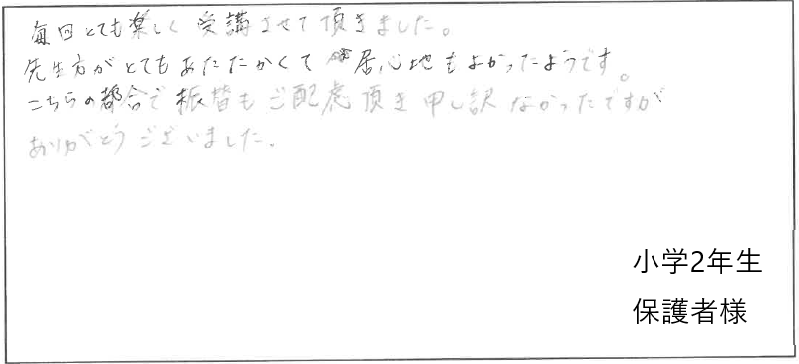 毎回とても楽しく受講させて頂きました。
先生方がとてもあたたかくて居心地もよかったようです。
こちらの都合で振替もご配慮頂き申し訳なかったですが
ありがとうございました。
小学2年生
保護者様